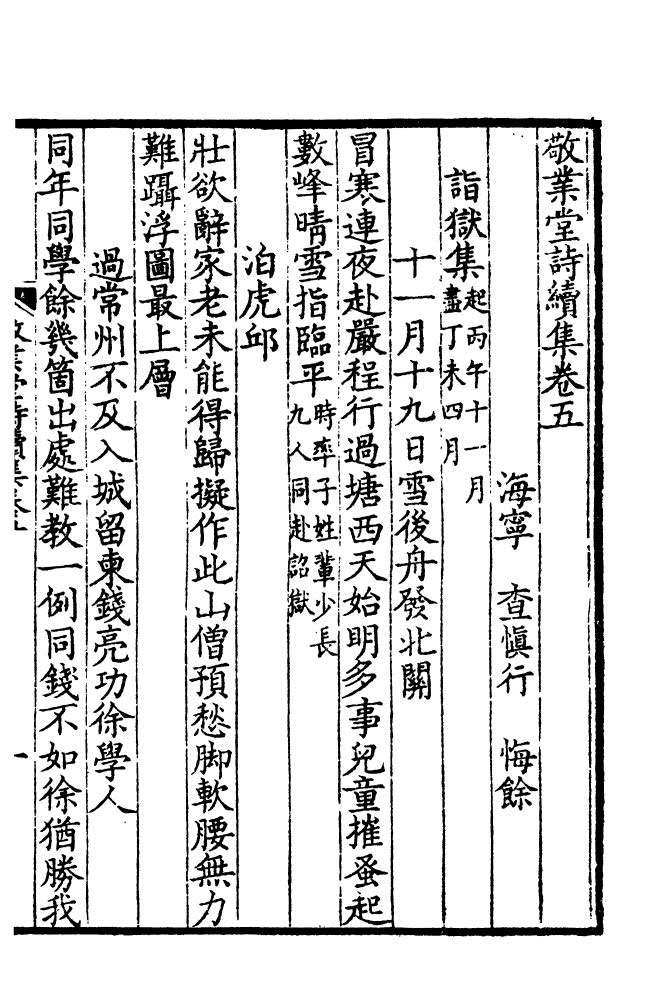 敬業堂詩續集卷五
海寧　查愼行　悔餘
詣獄集起丙午十一月盡丁未四月
十一月十九日雪後舟發北關
冒寒連夜赴嚴程行過塘西天始明多事兒童摧蚤起
數峰晴雪指臨平時率子姓輩少長九人同赴詔獄
泊虎邱
壯欲辭家老未能得歸擬作此山僧預愁脚軟腰無力
難躡浮圖最上層
過常州不及入城留柬錢亮功徐學人
同年同學餘幾箇出處難教一例同錢不如徐猶勝我
敬業堂詩續集卷五
一